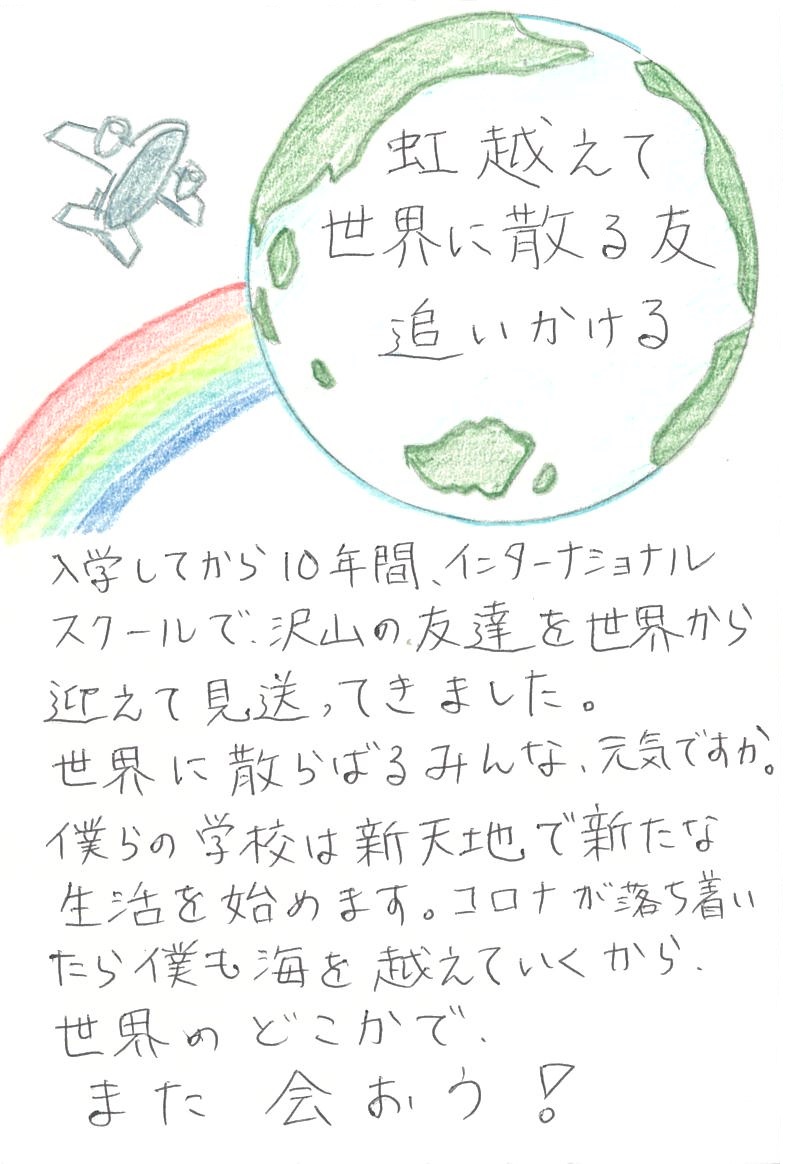 虹越えて
世界に散る友
追いかける
入学してから10年間、インターナショナル
スクールで、沢山の友達を世界から
迎えて見送ってきました。
世界に散らばるみんな、元気ですか。
僕らの学校は新天地で新たな
生活を始めます。コロナが落ち着い
たら僕も海を越えていくから、
世界のどこかで、
また会おう!